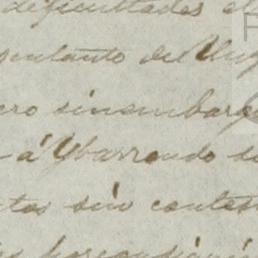 dificultades el
sentanto del Uru
ero sinembarg
á Ybarrondo su
tos sin contest